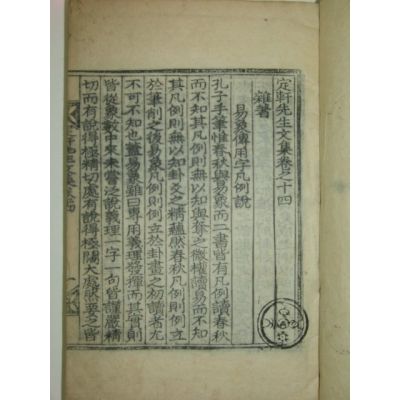 定軒先生文集卷之十四
雜著
易象傳用字凡例說
孔子手筆惟春秋與易象而二書皆有凡例讀春秋
而不知其凡例則無以知與奪之微權讀易而不知
其凡例則無以知卦爻之精蘊然春秋凡例則立
於筆削之後易象凡例則例立於卦畫之初讀者尤
不可不知也蓋易象雖曰專用義理發揮而其實則
皆從象數中來未嘗泛說義理一字一句皆謹嚴精
切而有說得極精切處有說得極闊大處然要之皆